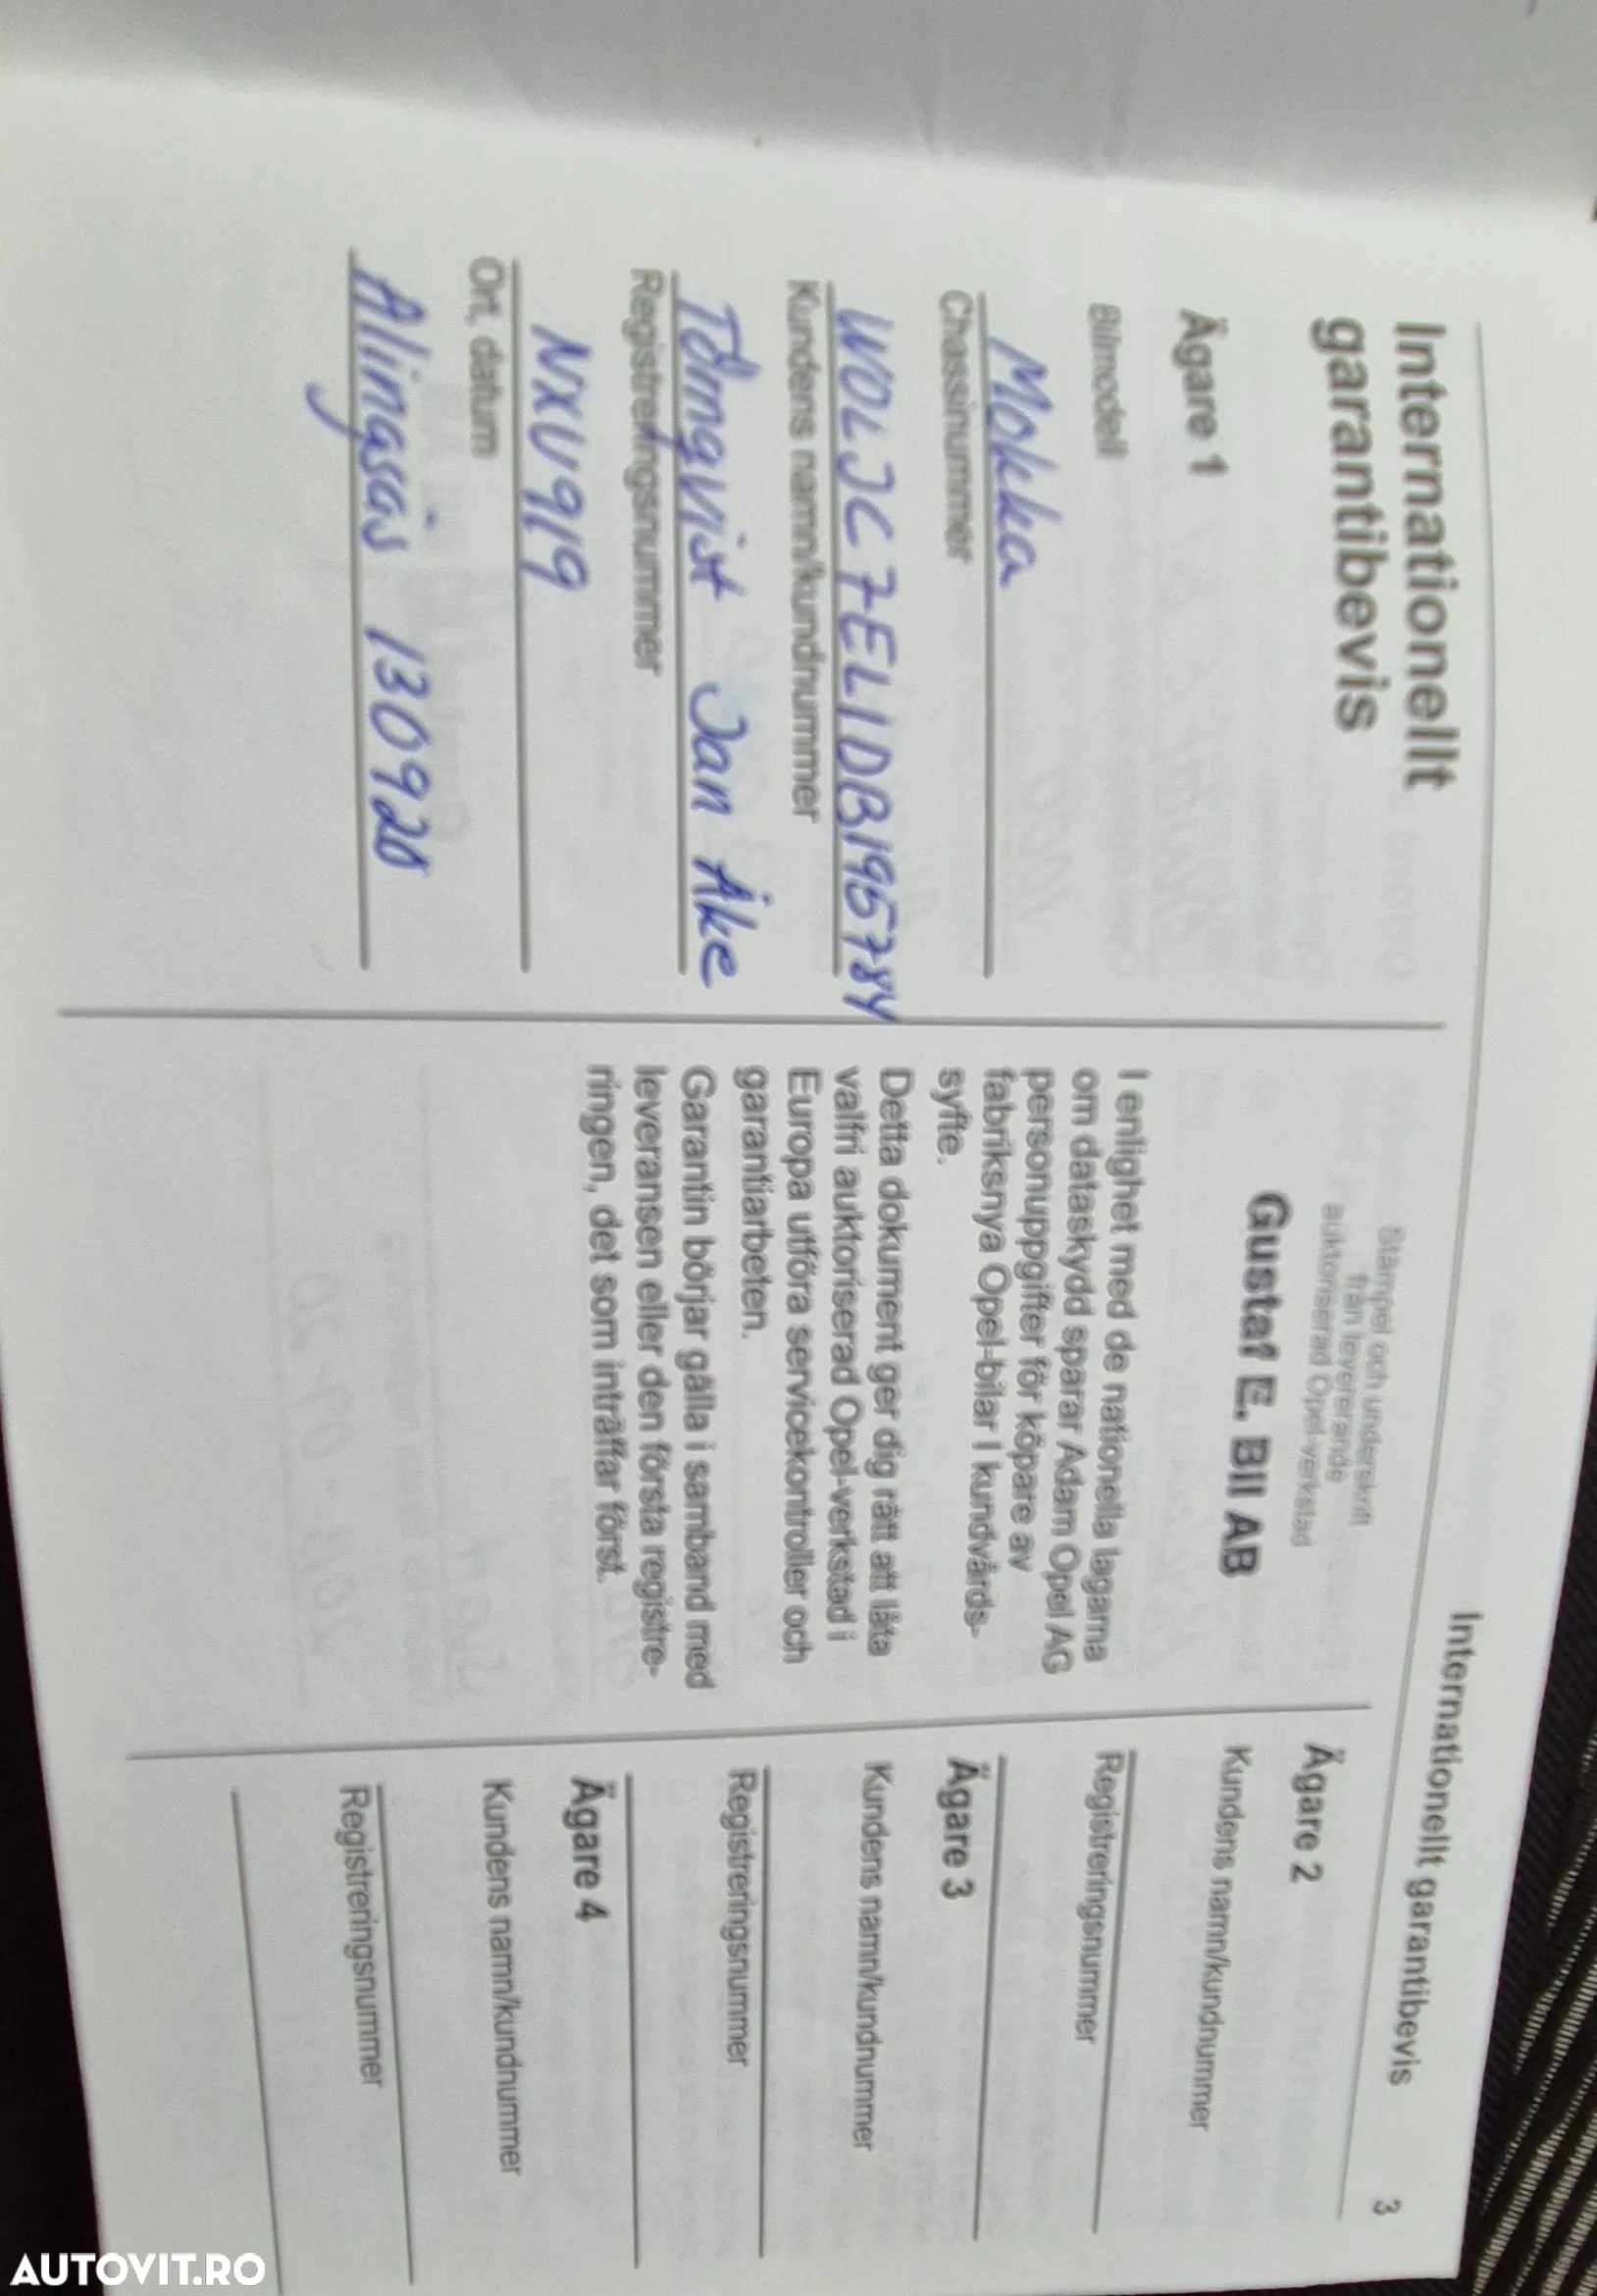 Internationellt garantibevis 3
Internationellt
garantibevis
Ägare 1
Bilmodell
Mokka
Chassinummer
WOLJC7EL1DB195784
Kundens namn/kundnummer
Törnqvist Jan Åke
Registreringsnummer
NXU919
Ort, datum
Alingsås 130920
Stämpel och underskrift
från levererande
auktoriserad Opel-verkstad
Gustaf E. Bil AB
I enlighet med de nationella lagarna
om dataskydd sparar Adam Opel AG
personuppgifter för köpare av
fabriksnya Opel-bilar i kundvårds-
syfte.
Detta dokument ger dig rätt att låta
valfri auktoriserad Opel-verkstad i
Europa utföra servicekontroller och
garantiarbeten.
Garantin börjar gälla i samband med
leveransen eller den första registre-
ringen, det som inträffar först.
Ägare 2
Kundens namn/kundnummer
Registreringsnummer
Ägare 3
Kundens namn/kundnummer
Registreringsnummer
Ägare 4
Kundens namn/kundnummer
Registreringsnummer
AUTOVIT.RO